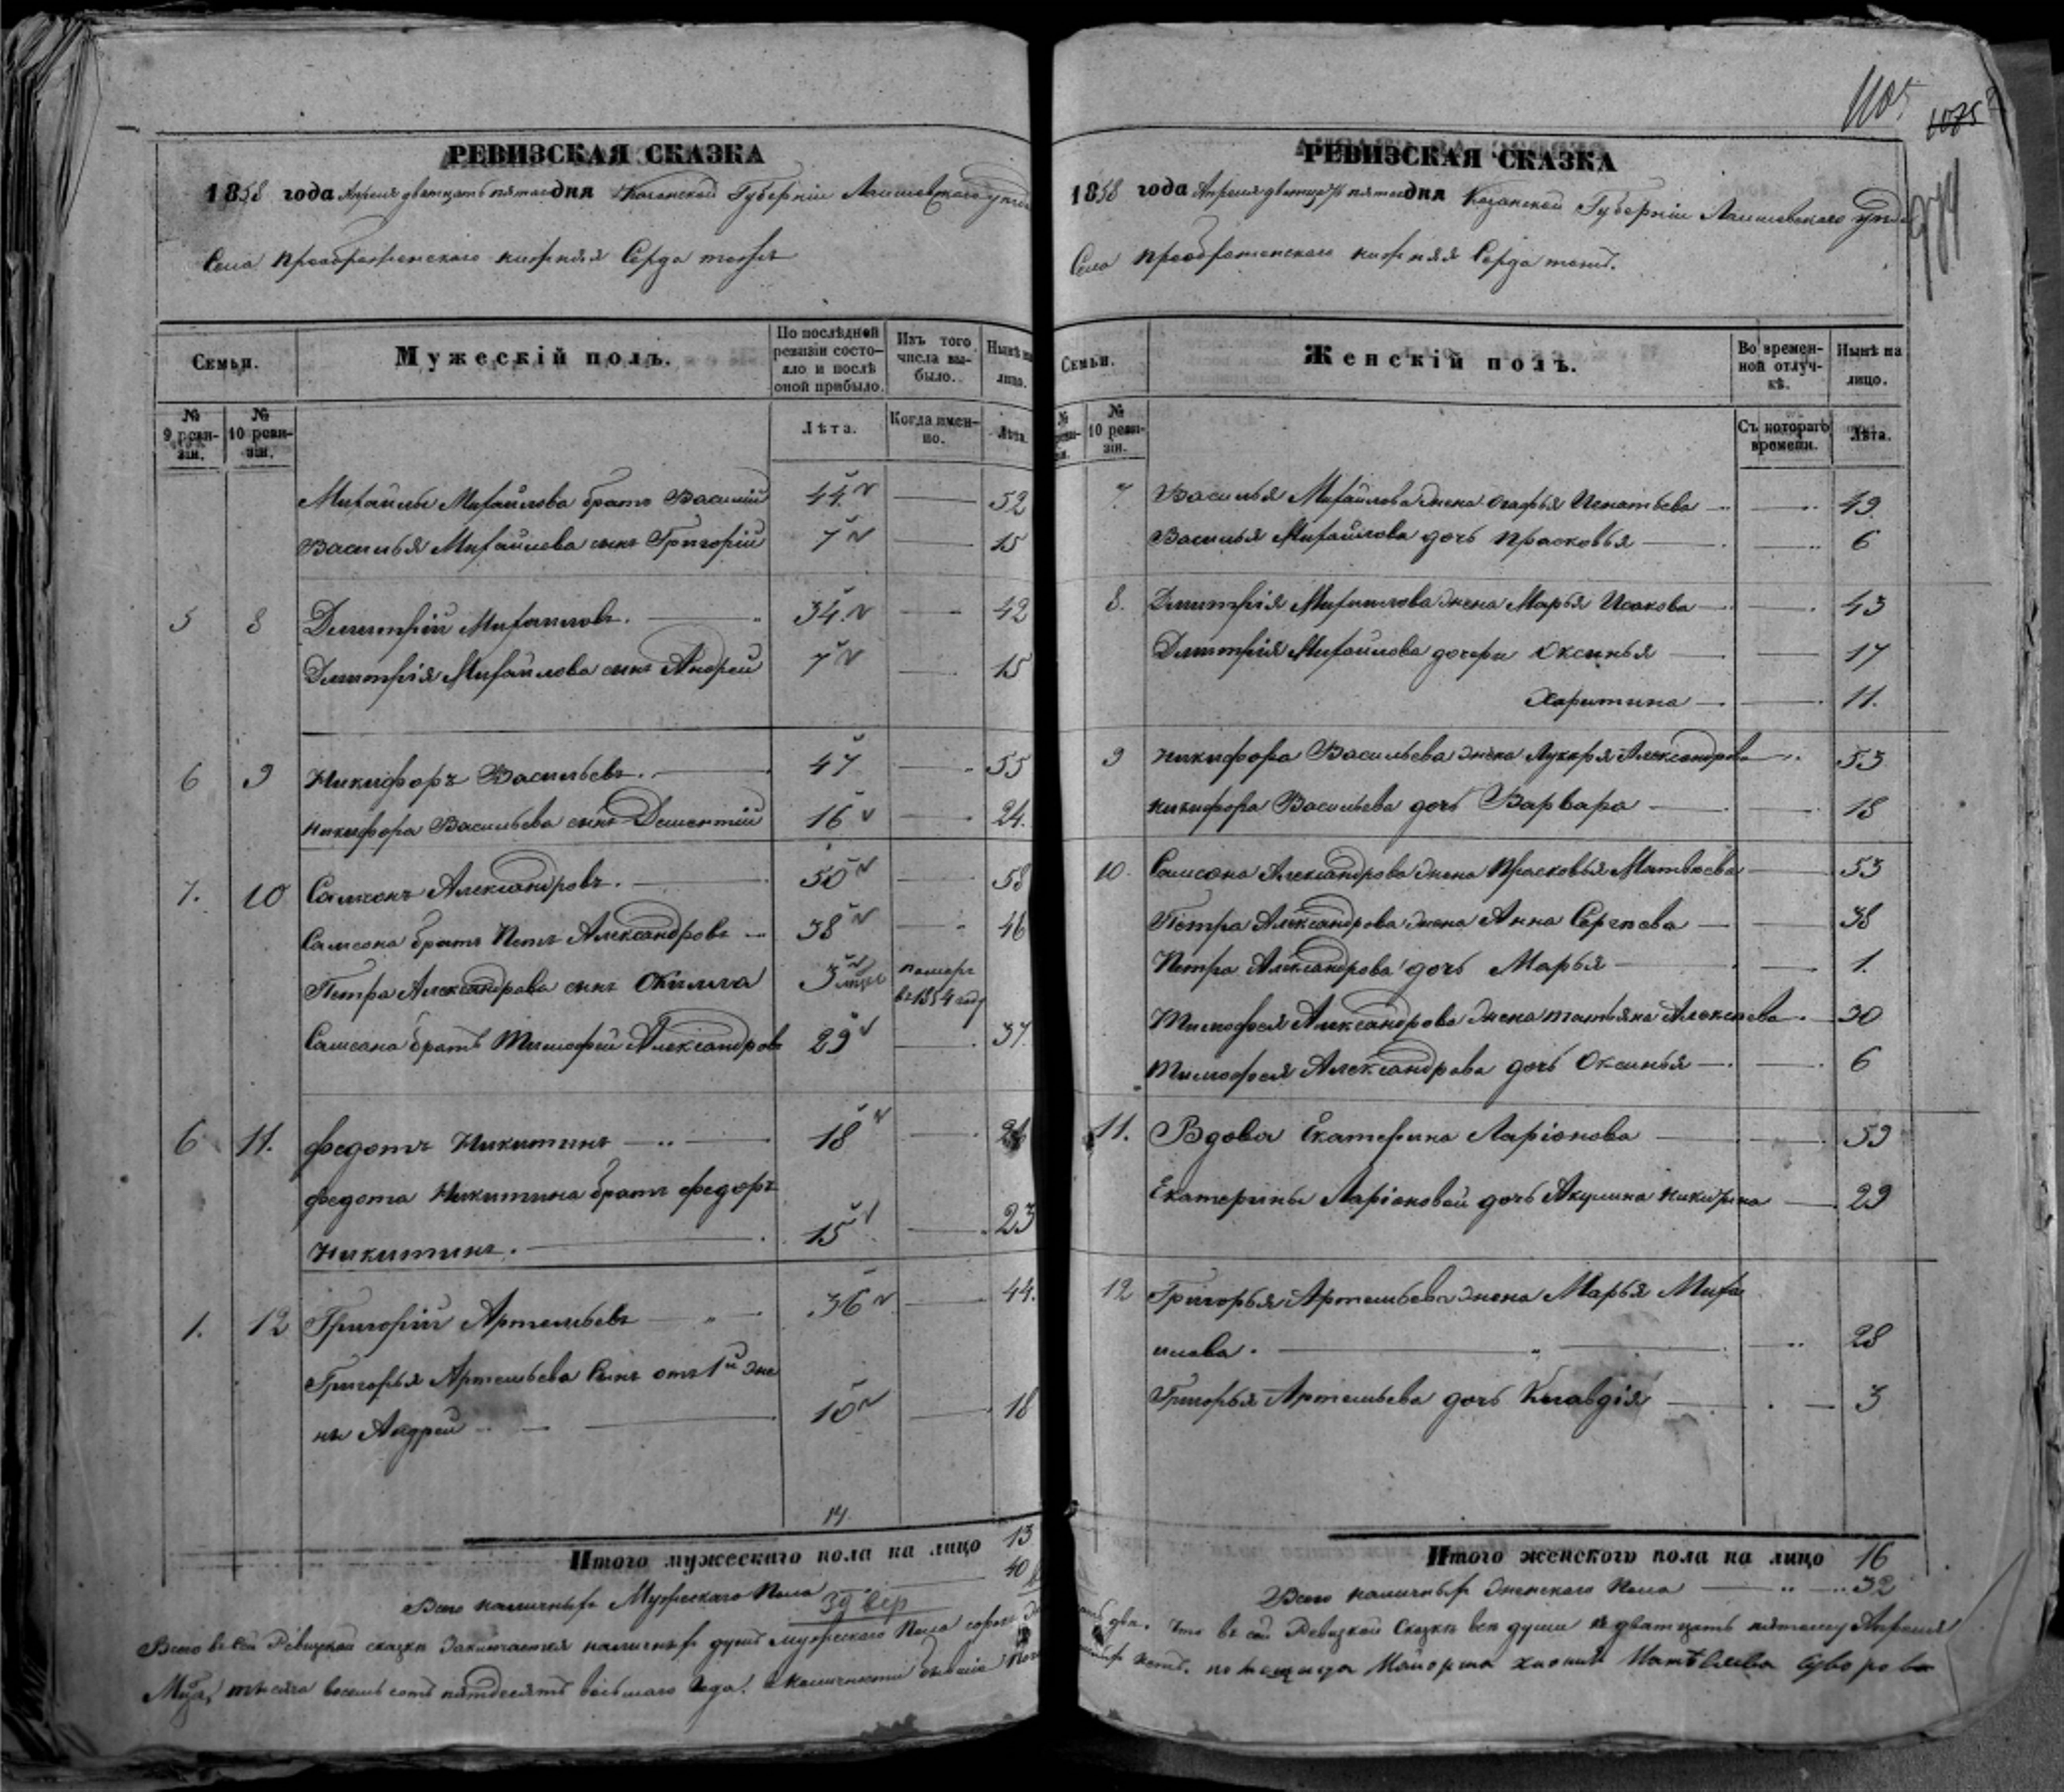 РЕВИЗСКАЯ СКАЗКА
1858 года Апреля дватцать пятаго дня Казанской Губерніи Лаишевскаго уѣзда
Села Преображенскаго нижняя Серда тожъ
Семьи.
Мужескій полъ.
По послѣдней ревизіи состояло и послѣ оной прибыло.
Изъ того числа выбыло.
Нынѣ на лицо.
№ 9 ревизіи.
№ 10 ревизіи.
Лѣта.
Когда именно.
Лѣта.
Михайлы Михайлова братъ Василій 44 52
Василья Михайлова сынъ Григорій 7 15
5 8 Дмитрій Михайловъ. 34 42
Дмитрія Михайлова сынъ Андрей 7 15
6 9 Никифоръ Васильевъ. 47 55
Никифора Васильева сынъ Дементій 16 24.
7. 10 Самсонъ Александровъ. 50 58
Самсона братъ Петръ Александровъ 38 46
Петра Александрова сынъ 3 померъ
въ 1854 году
Самсона братъ Тимофей Александровъ 29 37.
6 11. Федотъ Никитинъ 18 26
Федота Никитина братъ Федоръ
Никитинъ. 15 23
1. 12 Григорій Артемьевъ 36 44.
Григорья Артемьева сынъ отъ 1й же
нѣ Андрей 10 18
14.
Итого мужескаго пола на лицо 13
Всего наличныхъ Мужескаго Пола 40
Всего въ сей Ревизской сказкѣ Заключается наличныхъ душъ мужескаго Пола сорокъ
тысяча восемь сотъ пятдесятъ восьмаго Года.
110
1085
974
РЕВИЗСКАЯ СКАЗКА
1858 года Апреля дватцать пятаго дня Казанской Губерніи Лаишевскаго уѣзда
Села Преображенскаго нижняя Серда тожъ.
Семьи.
Женскій полъ.
Во временной отлучкѣ.
Нынѣ на лицо.
№ 10 ревизіи.
Съ котораго времени.
Лѣта.
7. Василья Михайлова жена Огафья Игнатьева 49
Василья Михайлова дочь Прасковья 6
8. Дмитрія Михайлова жена Марья Исакова 43
Дмитрія Михайлова дочери Оксинья 17
Харитина 11.
9 Никифора Васильева жена Лукерья Александрова 53
Никифора Васильева дочь Варвара 18
10. Самсона Александрова жена Прасковья Матвѣева 53
Петра Александрова жена Анна Сергѣева 38
Петра Александрова дочь Марья 1.
Тимофея Александрова жена татьяна Алексѣева 30
Тимофея Александрова дочь Оксинья 6
11. Вдова Екатерина Ларіонова 59
Екатерины Ларіоновой дочь Акулина Никитина 29
12 Григорья Артемьева жена Марья Миха
илова. 28
Григорья Артемьева дочь Клавдія 3
Итого женскаго пола на лицо 16
Всего наличныхъ Женскаго Пола 32
два. Что въ сей Ревизской Сказкѣ всѣ души къ дватцать пятому Апреля
нетъ. помещица Маиорша Матвѣева Суворова